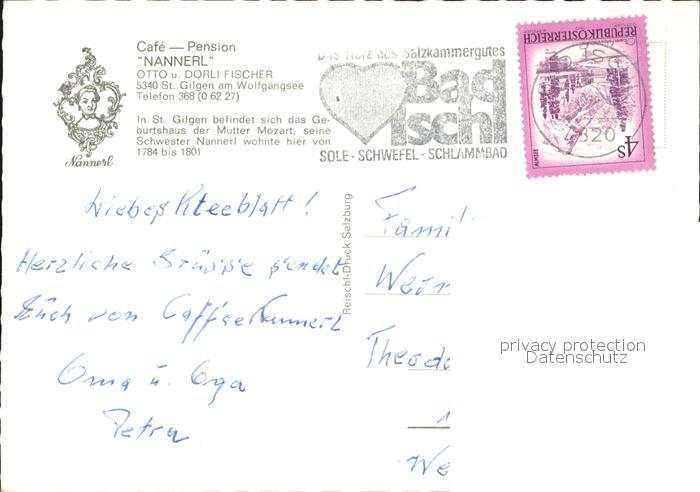 Café — Pension
"NANNERL"
OTTO u. DORLI FISCHER
5340 St. Gilgen am Wolfgangsee
Telefon 368 (0 62 27)
In St. Gilgen befindet sich das Ge-
burtshaus der Mutter Mozart, seine
Schwester Nannerl wohnte hier von
1784 bis 1801
Nannerl
Das Herz des Salzkammergutes
Bad
Ischl
SOLE - SCHWEFEL - SCHLAMMBAD
REPUBLIK ÖSTERREICH
4S
ALMSEE
4820
Reischl-Druck Salzburg
Liebes Kleeblatt!
Herzliche Grüsse sendet
Euch von Caffee Nannerl
Oma u. Opa
Petra
Famil
Wern
Theodo
We
privacy protection
Datenschutz